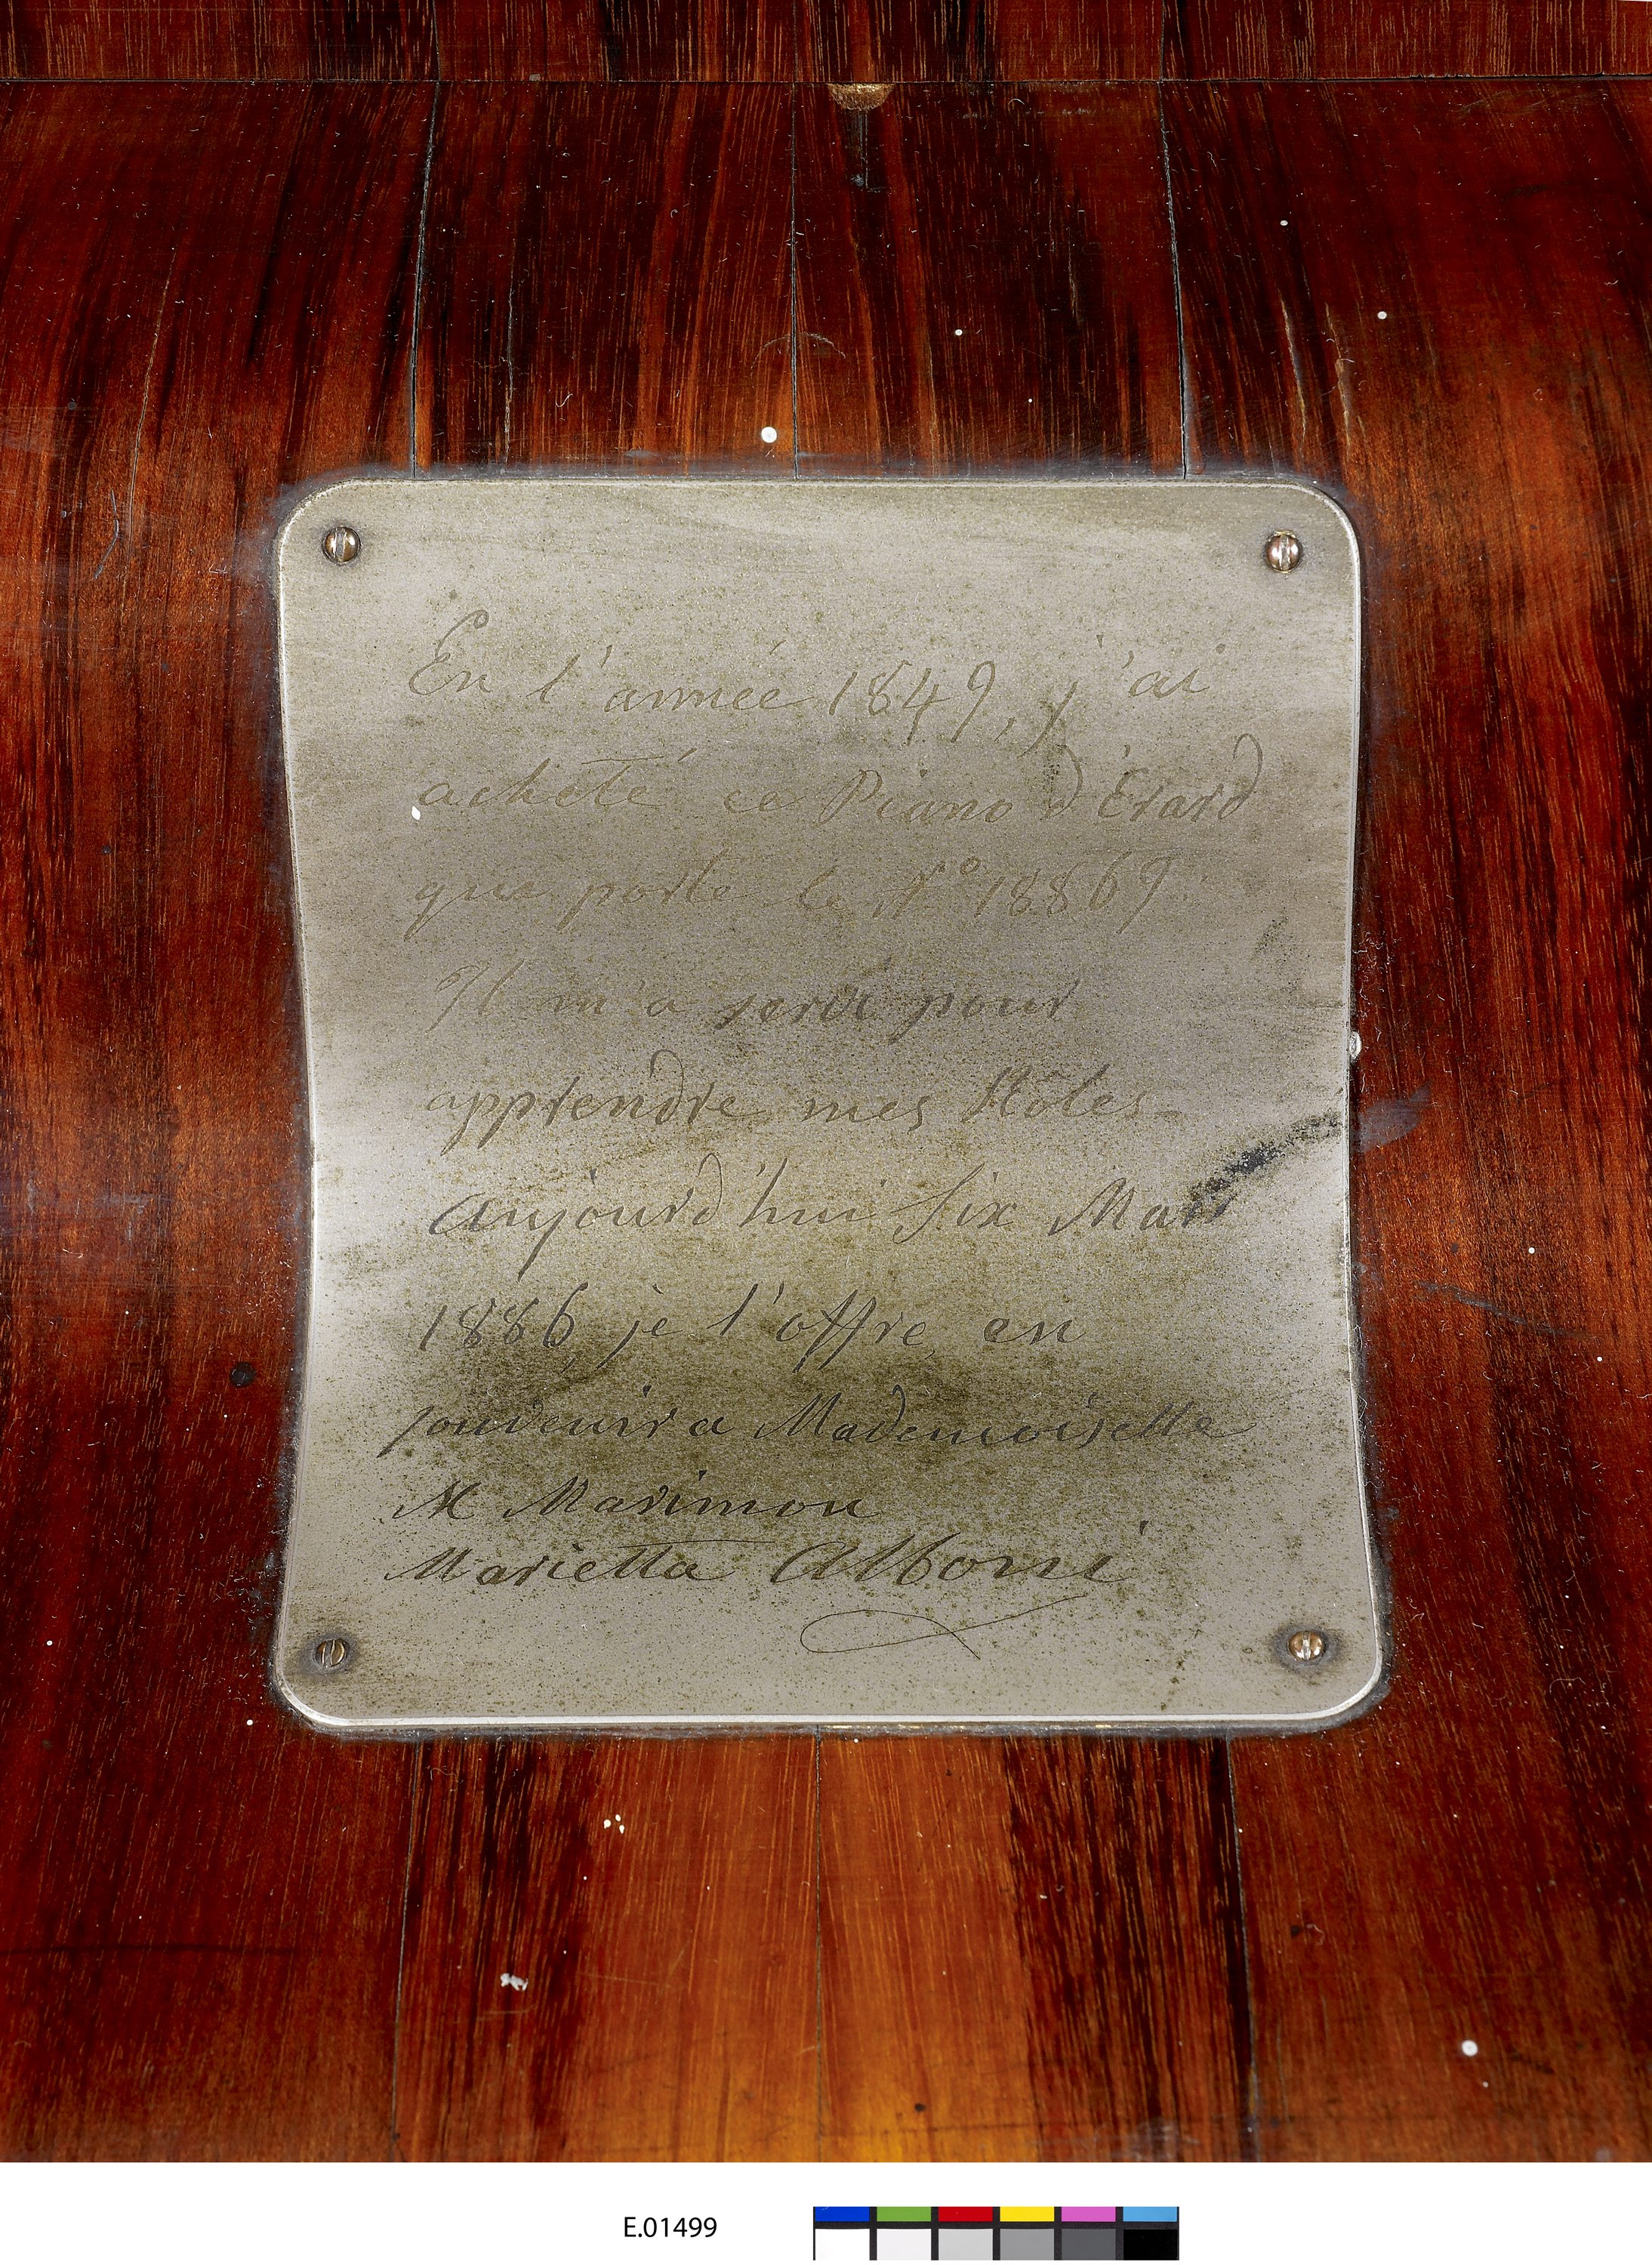 En l'année 1849, j'ai
acheté ce Piano d'Érard
que porte le N° 18869
Il m'a servi pour
apprendre mes Rôles
aujourd'hui Six Mars
1886, je l'offre en
souvenir a Mademoiselle
M Marimon
Marietta Alboni
E.01499